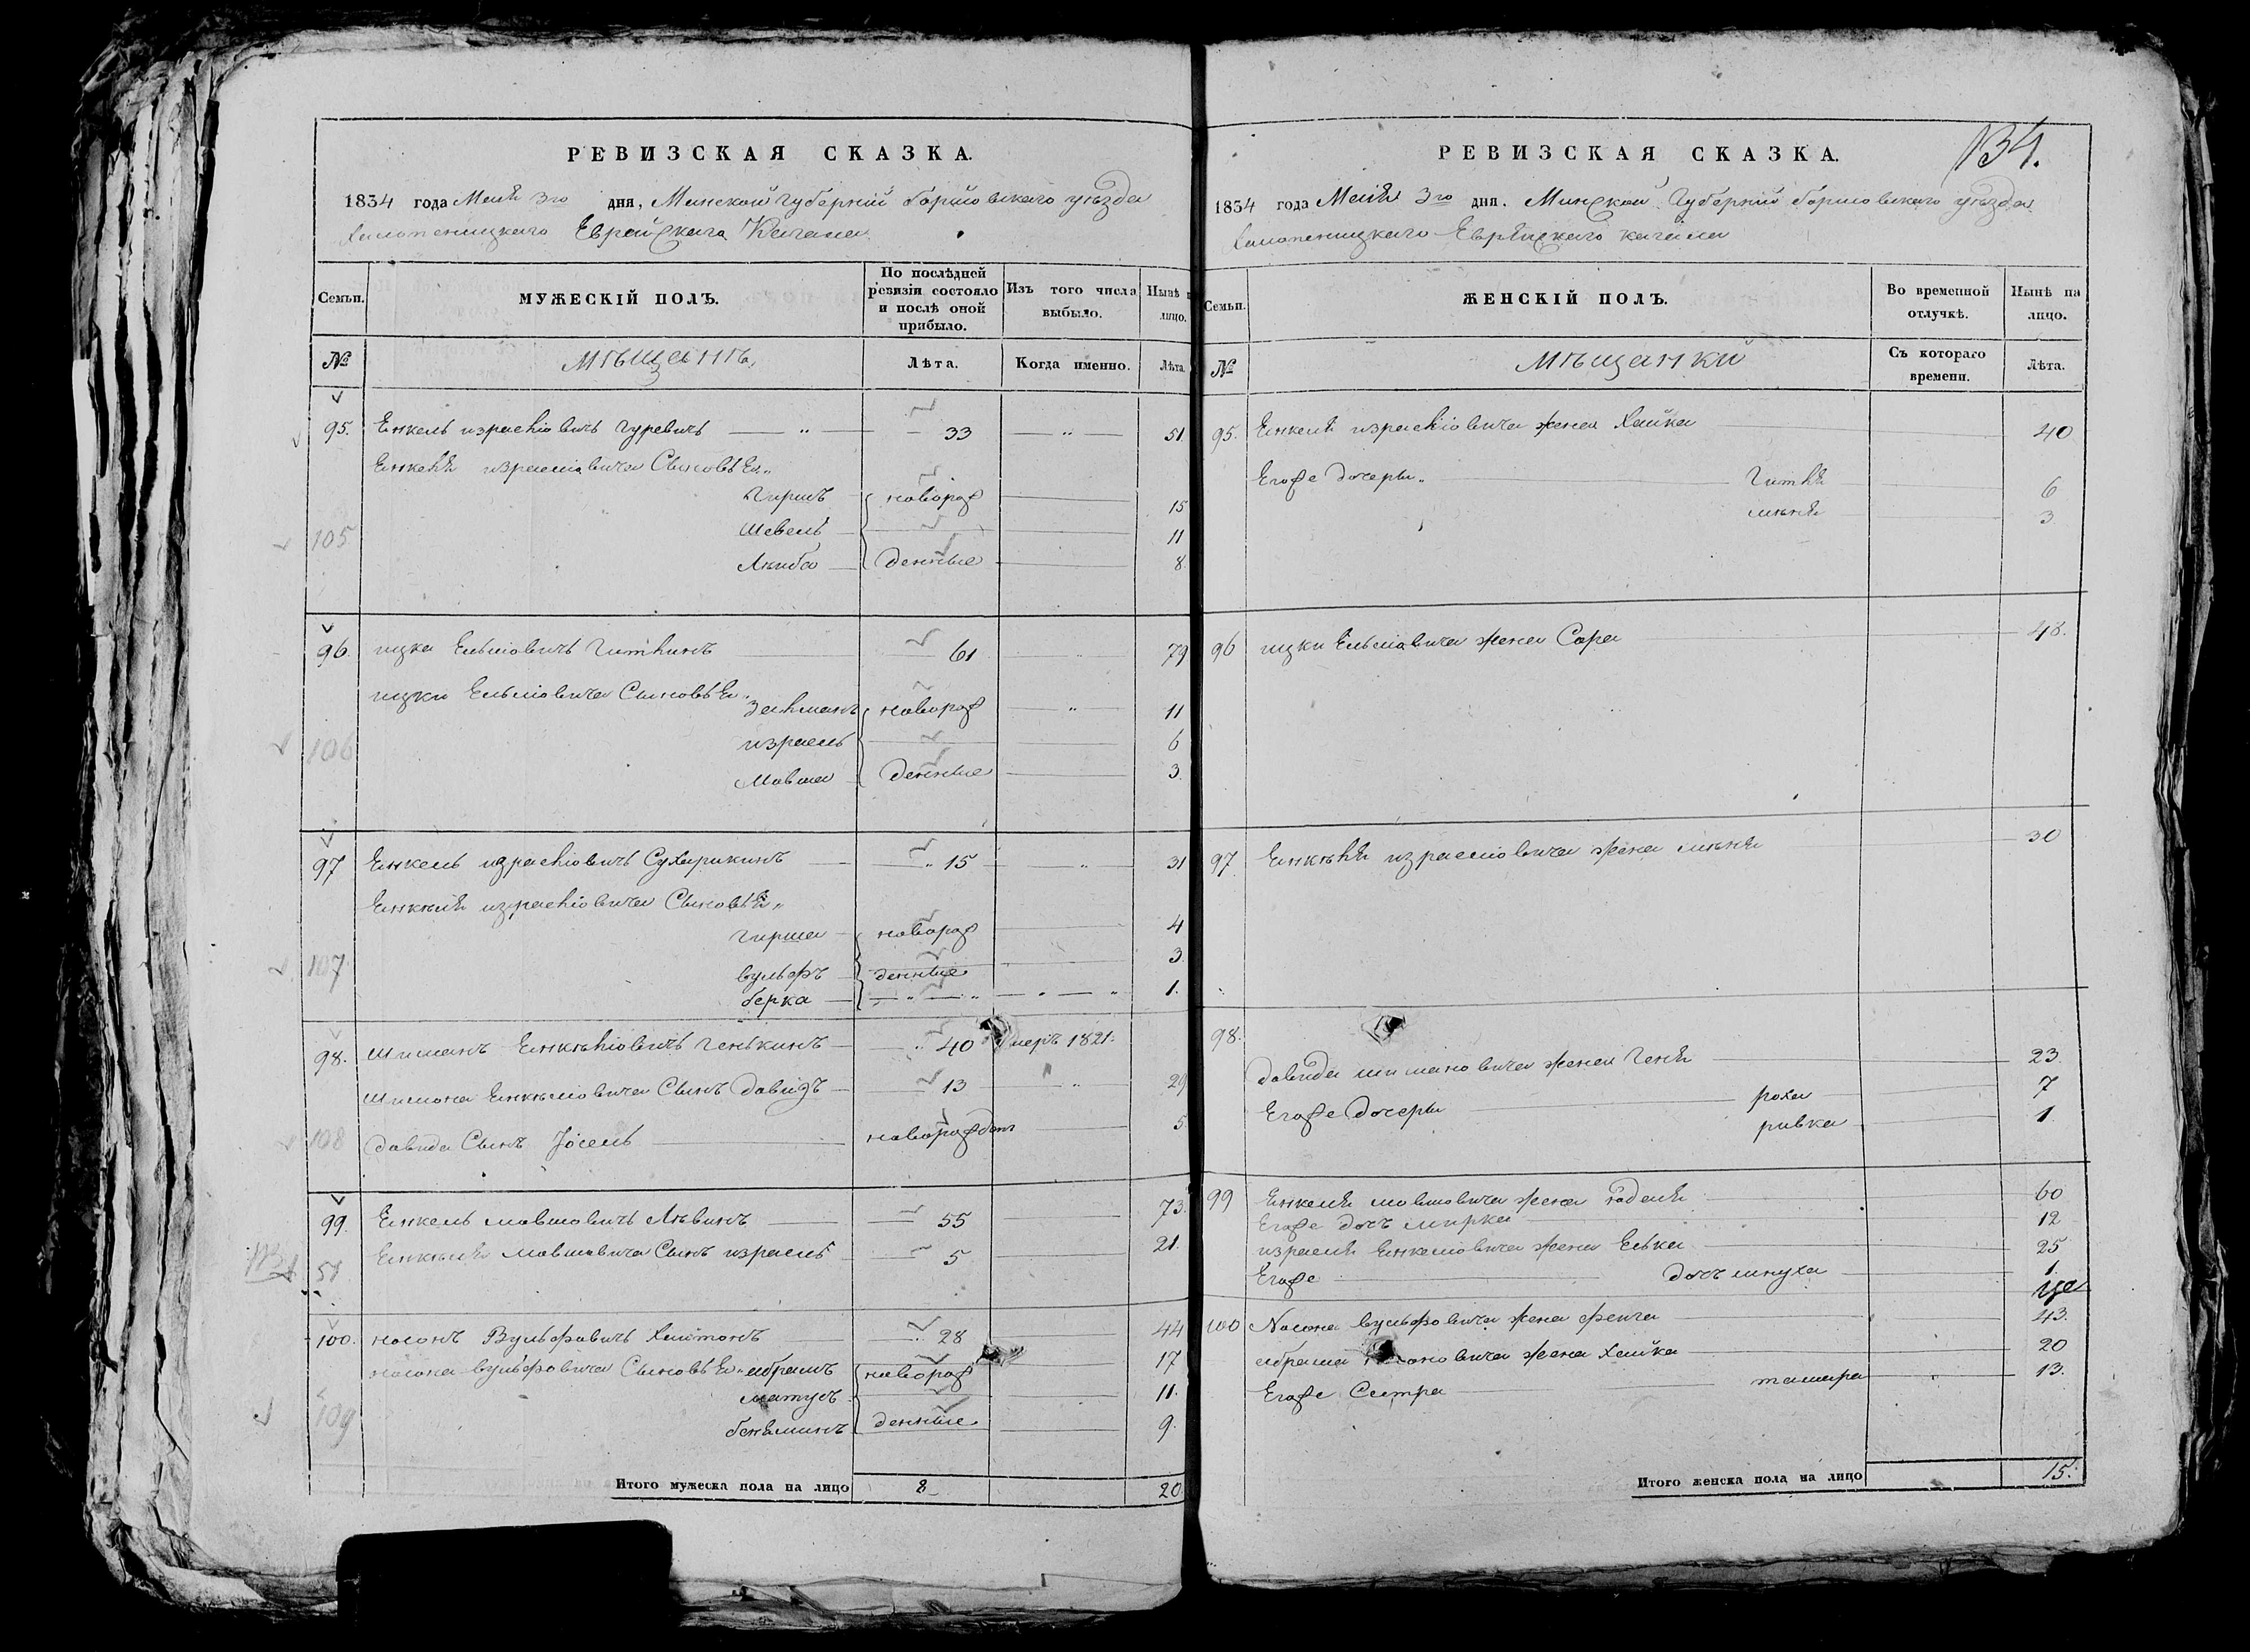 РЕВИЗСКАЯ СКАЗКА.
1834 года Маія 3го дня, Минской губерніи борисовскаго уѣзда
Холопеницкаго Еврейскаго Кагала
Семьи. МУЖЕСКІЙ ПОЛЪ. По послѣдней ревизіи состояло и послѣ оной прибыло. Изъ того числа выбыло. Нынѣ лицо.
№ мѣщанѣ Лѣта. Когда именно. Лѣта.
95. Енкель израеліовичъ гуревичъ 33 51
Енкеля израеліовича Сыновья
Гиршъ новорож 15
Шевель 11
105 Лейба денные 8
96. ицка Ельіовичъ Гиткинъ 61 79
ицки Ельіовича Сыновья
Залманъ новорож 11
израель 6
106 Мовша денные 3
97 Енкель израеліовичъ Сухарикинъ 15 31
Енкеля израеліовича Сыновья
Гирша новорож 4
107 вульфъ денные 3
берка 1.
98. Шиманъ Енкеліовичъ Генькинъ 40 умеръ 1821.
Шимона Енкеліовича Сынъ Давидъ 13 29
108 Давида Сынъ Јосель новорожден 5
99. Енкель мовшовичъ Лѣвинъ 55 73
Енкеля Мовшовича Сынъ израель 5 21.
100. носонъ Вульфовичъ Хаитонъ 28 44
носона вульфовича Сыновья абрамъ новорож 17
матусъ 11.
109 бенѣминъ денные 9.
Итого мужеска пола на лицо 8 20
134.
РЕВИЗСКАЯ СКАЗКА.
1834 года Маія 3го дня. Минской Губерніи борисовскаго уѣзда
Холопеницкаго Еврѣйскаго кагала
Семьи. ЖЕНСКІЙ ПОЛЪ. Во временной отлучкѣ. Нынѣ на лицо.
№ мѣщанки Съ котораго времени. Лѣта.
95. Енкеля израеліовича жена Хайка 40
Егоже дочери Гитля 6
3
96 ицки Ельіовича жена Сора 48.
97 Енкеля израеліовича жена 30
98.
Давида шимановича жена Геня 23
Егоже Дочери роха 7
ривка 1
99 Енкеля мовшовича жена 60
Егоже дочь мирка 12
израеля Енкеліовича жена Елька 25
Егоже дочь 1.
100 Носона вульфовича жена фейга 43.
абрама жена Хайка 20
Егоже Сестра тамара 13.
Итого женска пола на лицо 15.